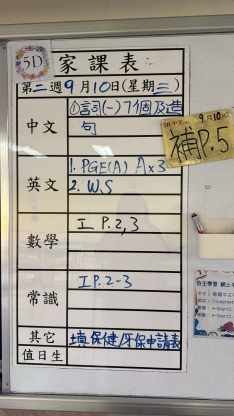 5D 家課表
第二週9月10日(星期三)
中文 ①詞(一)7個及造
句
英文 1. PGE(A) A×3
2. W.S
數學 工 P.2,3
常識 工P.2-3
其它 填保健/牙保申請表
值日生
9月10
補P.5
自主學習 網上